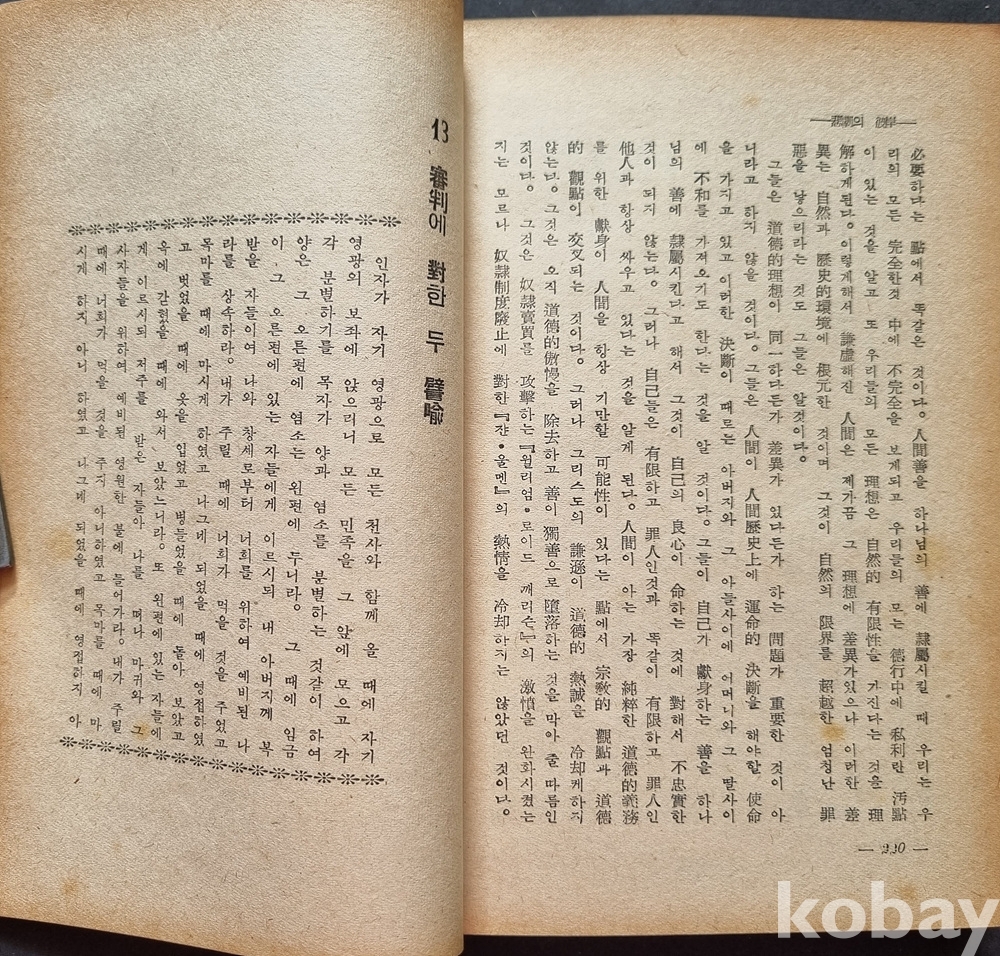 必要하다는 點에서 똑같은 것이다。人間善을 하나님의 善에 隸屬시킬 때 우리는 우
리의 모든 完全한것 中에 不完全을 보게되고 우리들의 모든 德行中에 私利란 汚點
이 있는 것을 알고 또 우리들의 모든 理想은 自然的 有限性을 가진다는 것을 理
解하게된다。이렇게해서 謙虛해진 人間은 제가끔 그 理想에 差異가있으나 이러한 差
異는 自然과 歷史的環境에 根元한 것이며 그것이 自然의 限界를 超越한 엄청난 罪
惡을 낳으리라는 것도 그들은 알것이다。
그들은 道德的理想이 同一하다든가 差異가 있다든가 하는 問題가 重要한 것이 아
니라고 하지 않을 것이다。그들은 人間이 人間歷史上에 運命的 決斷을 해야할 使命
을 가지고 있고 이러한 決斷이 때로는 아버지와 그 아들사이에 어머니와 그 딸사이
에 不和를 가져오기도 한다는 것을 알 것이다。그들이 自己가 獻身하는 善을 하나
님의 善에 隸屬시킨다고 해서 그것이 自己의 良心이 命하는 것에 對해서 不忠實한
것이 되지 않는다。그러나 自己들은 有限하고 罪人인것과 똑같이 有限하고 罪人인
他人과 항상 싸우고 있다는 것을 알게 된다。人間이 아는 가장 純粹한 道德的義務
를 위한 獻身이 人間을 항상 기만할 可能性이 있다는 點에서 宗敎的 觀點과 道德
的 觀點이 交叉되는 것이다。그러나 그리스도의 謙遜이 道德的 熱誠을 冷却케하지
않는다。그것은 오직 道德的傲慢을 除去하고 善이 獨善으로 墮落하는 것을 막아 줄 따름인
것이다。그것은 奴隸賣買를 攻擊하는『윌리엄·로이드 깨리슨』의 激憤을 완화시켰는
지는 모르나 奴隸制度廢止에 對한『쟌·울멘』의 熱情을 冷却하지는 않았던 것이다。
— 220 —
13 審判에 對한 두 譬喩
인자가 자기 영광으로 모든 천사와 함께 올 때에 자기
영광의 보좌에 앉으리니 모든 민족을 그 앞에 모으고 각
각 분별하기를 목자가 양과 염소를 분별하는 것같이 하여
양은 그 오른편에 염소는 왼편에 두니라。그 때에 임금
이 그 오른편에 있는 자들에게 이르시되 내 아버지께 복
받을 자들이여 나와 창세로부터 너희를 위하여 예비된 나
라를 상속하라。내가 주릴 때에 너희가 먹을 것을 주었고
목마를 때에 마시게 하였고 나그네 되었을 때에 영접하였
고 벗었을 때에 옷을 입었고 병들었을 때에 돌아 보았고
옥에 갇혔을 때에 와서 보았느니라。또 왼편에 있는 자들에
게 이르시되 저주를 받은 자들아 나를 떠나 마귀와 그
사자들을 위하여 예비된 영원한 불에 들어가라。내가 주릴
때에 너희가 먹을 것을 주지 아니하였고 목마를 때에 마
시게 하지 아니 하였고 나그네 되었을 때에 영접하지 아
kobay